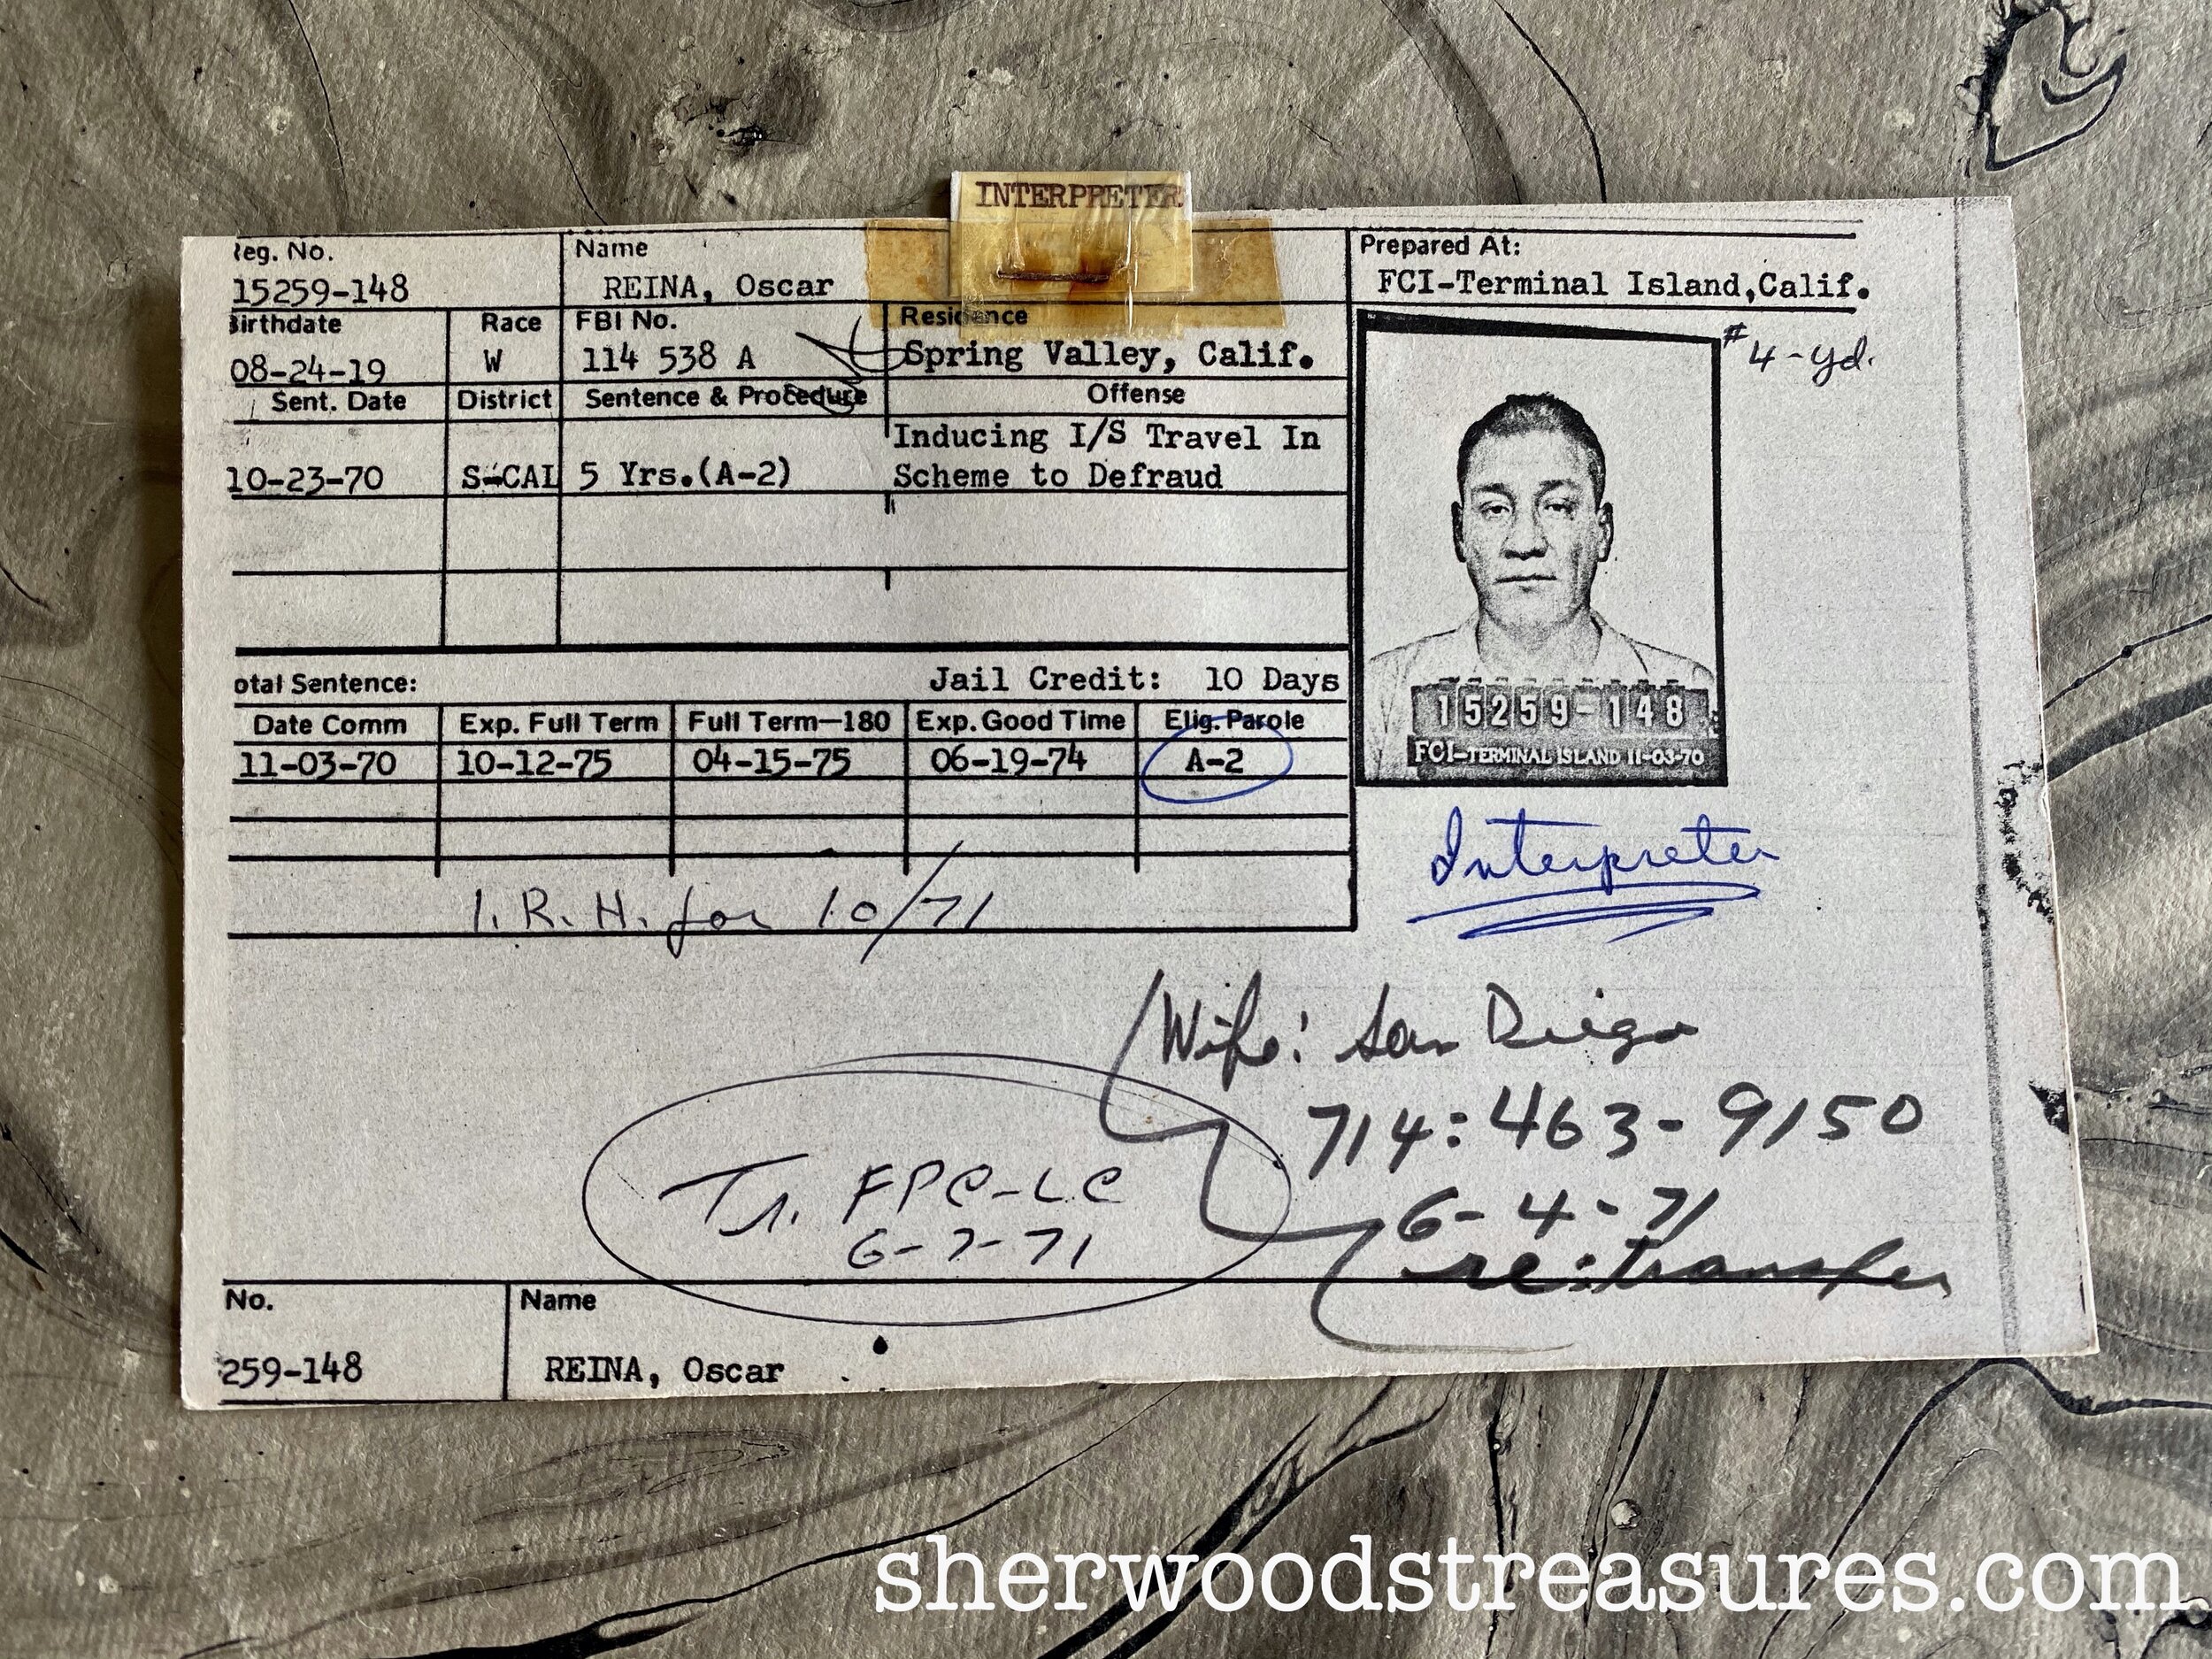 INTERPRETER
Reg. No.
15259-148
Name
REINA, Oscar
Prepared At:
FCI-Terminal Island,Calif.
Birthdate
08-24-19
Race
W
FBI No.
114 538 A
Residence
Spring Valley, Calif.
# 4-yd.
Sent. Date
District
Sentence & Procedure
Offense
10-23-70
S-CAL
5 Yrs.(A-2)
Inducing I/S Travel In
Scheme to Defraud
15259-148
FCI-TERMINAL ISLAND 11-03-70
otal Sentence:
Jail Credit: 10 Days
Date Comm
Exp. Full Term
Full Term—180
Exp. Good Time
Elig. Parole
11-03-70
10-12-75
04-15-75
06-19-74
A-2
Interpreter
I. R. H. for 10/71
Wife: San Diego
714: 463-9150
6-4-71
re: transfer
Tr. FPC-LC
6-7-71
No.
259-148
Name
REINA, Oscar
sherwoodstreasures.com